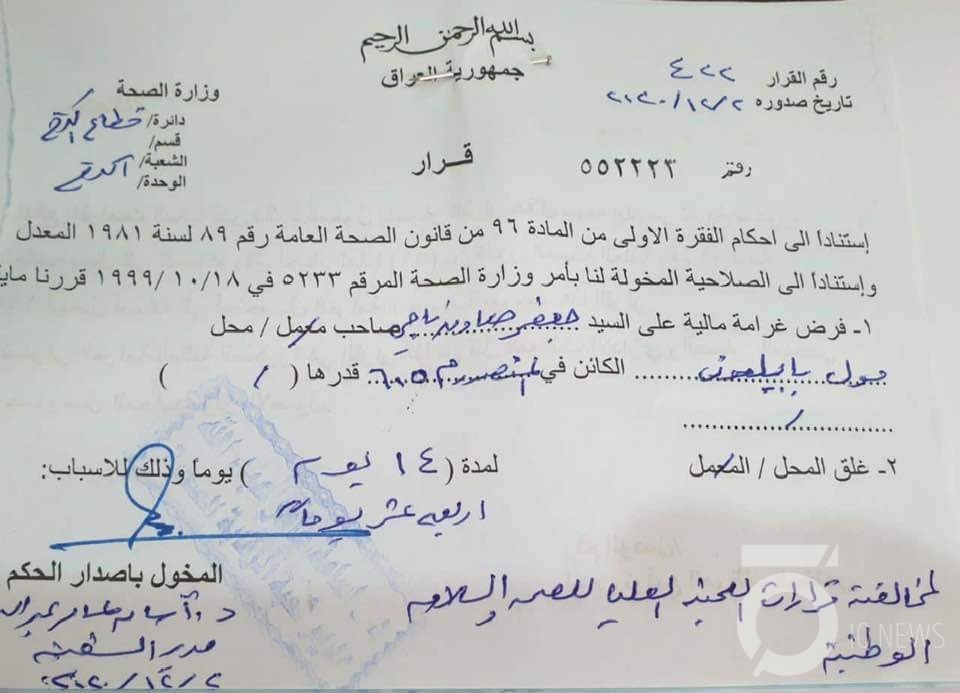 بسم الله الرحمن الرحيم
جمهورية العراق
رقم القرار ٤٢٢
تاريخ صدوره ٢٠٢٠/١٢/٢
وزارة الصحة
دائرة/ قطاع الكرخ
قسم/
الشعبة/ الكرخ
الوحدة/
رقم ٥٥٢٢٢٣
قرار
إستناداً الى احكام الفقرة الاولى من المادة ٩٦ من قانون الصحة العامة رقم ٨٩ لسنة ١٩٨١ المعدل
وإستناداً الى الصلاحية المخولة لنا بأمر وزارة الصحة المرقم ٥٢٣٣ في ١٨/١٠/١٩٩٩ قررنا ماي
١- فرض غرامة مالية على السيد جعفر صاحب معمل / محل
مول بابيلون الكائن في المنصور م ٦٠٥ قدرها ( / )
/
٢- غلق المحل / المعمل لمدة ( ١٤ يوم ) يوماً وذلك للاسباب:
اربعة عشر يوماً
لمخالفته قرارات اللجنة العليا للصحة والسلامة
الوطنية
المخول باصدار الحكم
مدير الشعبة
٢٠٢٠/١٢/٢
IQ NEWS